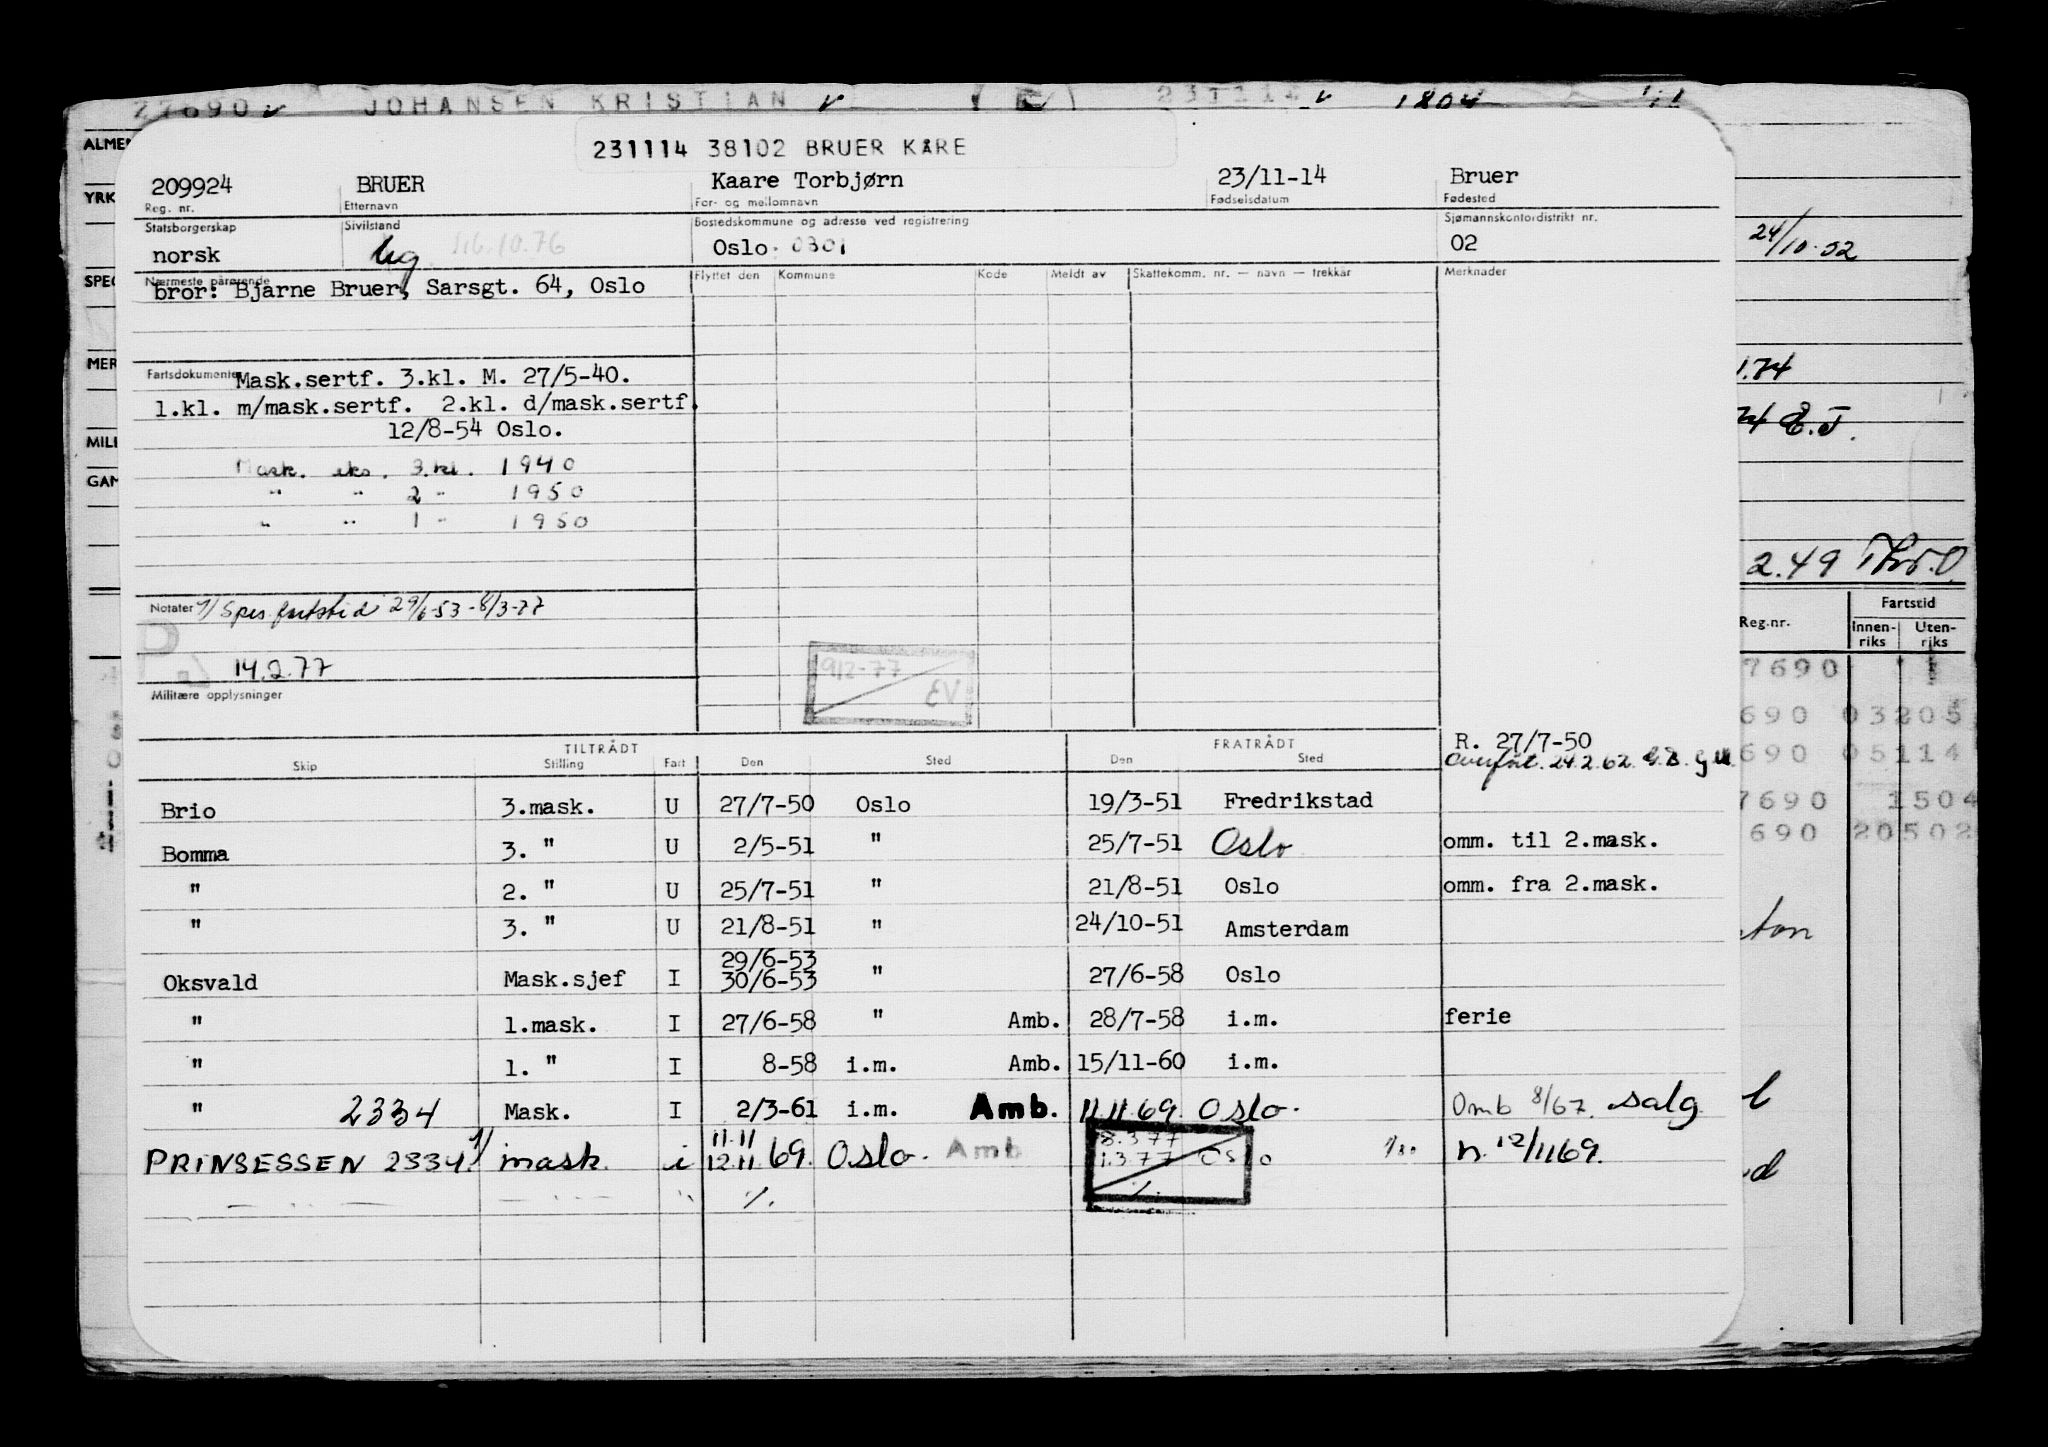 27690 JOHANSEN KRISTIAN (E) 231114 1804
231114 38102 BRUER KÅRE
209924 BRUER Kaare Torbjørn 23/11-14 Bruer
Reg. nr. Etternavn For- og mellomnavn Fødselsdatum Fødested
Statsborgerskap Sivilstand Bostedskommune og adresse ved registrering Sjømannskontordistrikt nr.
norsk ug 16.10.76 Oslo 0301 02
Nærmeste pårørende Flyttet den Kommune Kode Meldt av Skattekomm. nr. — navn — trekkår Merknader
bror: Bjarne Bruer, Sarsgt. 64, Oslo
Fartsdokumenter Mask.sertf. 3.kl. M. 27/5-40.
1.kl. m/mask.sertf. 2.kl. d/mask.sertf.
12/8-54 Oslo.
Mask. eks. 3.kl. 1940
" " 2 " 1950
" " 1 " 1950
Notater 1) Spes fartstid 29/6-53-8/3-77
14.2.77
912-77
EV
Militære opplysninger
TILTRÅDT FRATRÅDT R. 27/7-50
Skip Stilling Fart Den Sted Den Sted
24.2.62.
Brio 3.mask. U 27/7-50 Oslo 19/3-51 Fredrikstad
Bomma 3. " U 2/5-51 " 25/7-51 Oslo omm. til 2.mask.
" 2. " U 25/7-51 " 21/8-51 Oslo omm. fra 2.mask.
" 3. " U 21/8-51 " 24/10-51 Amsterdam
29/6-53
Oksvald Mask.sjef I 30/6-53 " 27/6-58 Oslo
" 1.mask. I 27/6-58 " Amb. 28/7-58 i.m. ferie
" 1. " I 8-58 i.m. Amb. 15/11-60 i.m.
" 2334 Mask. I 2/3-61 i.m. Amb. 11.11.69. Oslo. Omb 8/67. salg
11.11 8.3.77
PRINSESSEN 2334 1) mask. i 12.11.69. Oslo. Amb 1.3.77 Oslo n. 12/1169.
%. %.
ALMEN
YRK
SPEC
MER
MILI
GAM
24/10-52
1.74
74 E.J.
2.49
Reg.nr. Fartstid
Innen-riks Uten-riks
7690
690 03205
690 05114
7690 1504
690 20502